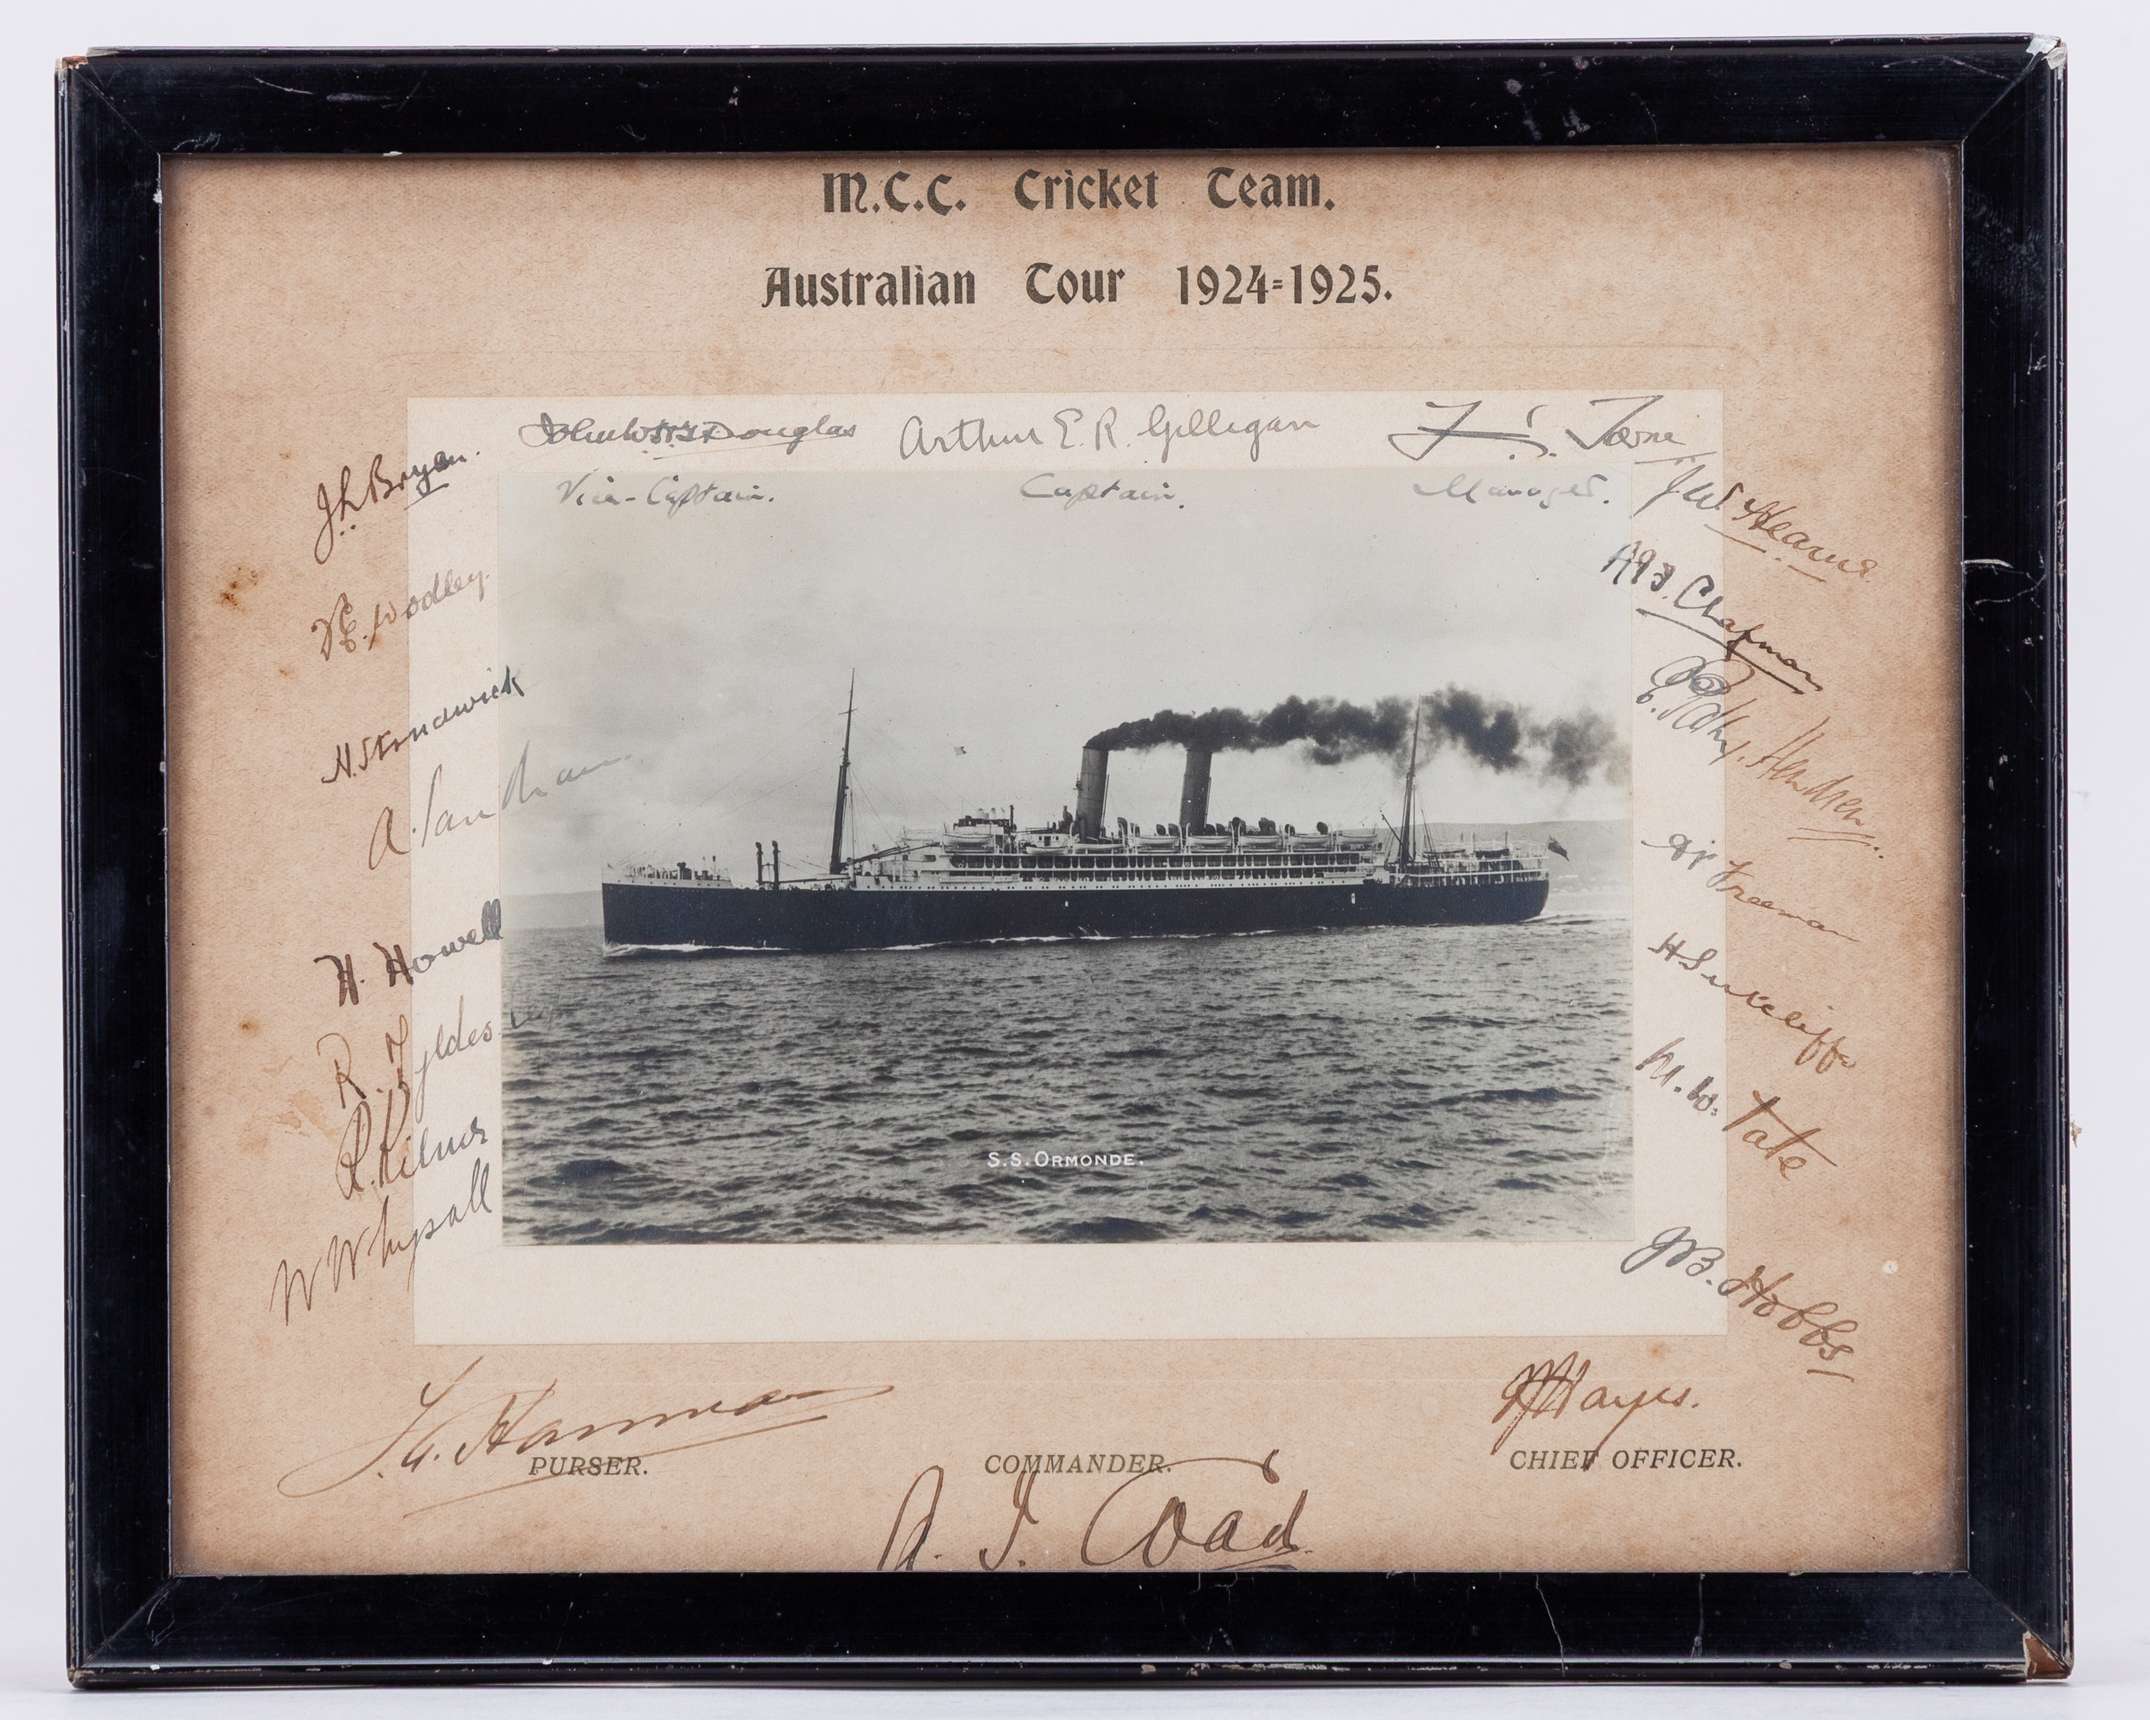 M.C.C. Cricket Team.
Australian Tour 1924=1925.
John W.H.T. Douglas
Vice-Captain.
Arthur E. R. Gilligan
Captain.
F. C. Toone
Manager.
J L Bryan.
F E. Woolley.
H. Strudwick
A. Sandham
H. Howell
R. Tyldesley
R. Kilner
W Whysall
J W Hearne.
A P F. Chapman
E. Patsy. Hendren.
A P Freeman
H Sutcliffe
M. W. Tate
J B. Hobbs
S.S. ORMONDE.
PURSER.
COMMANDER.
A. J. Coad
Hayes.
CHIEF OFFICER.